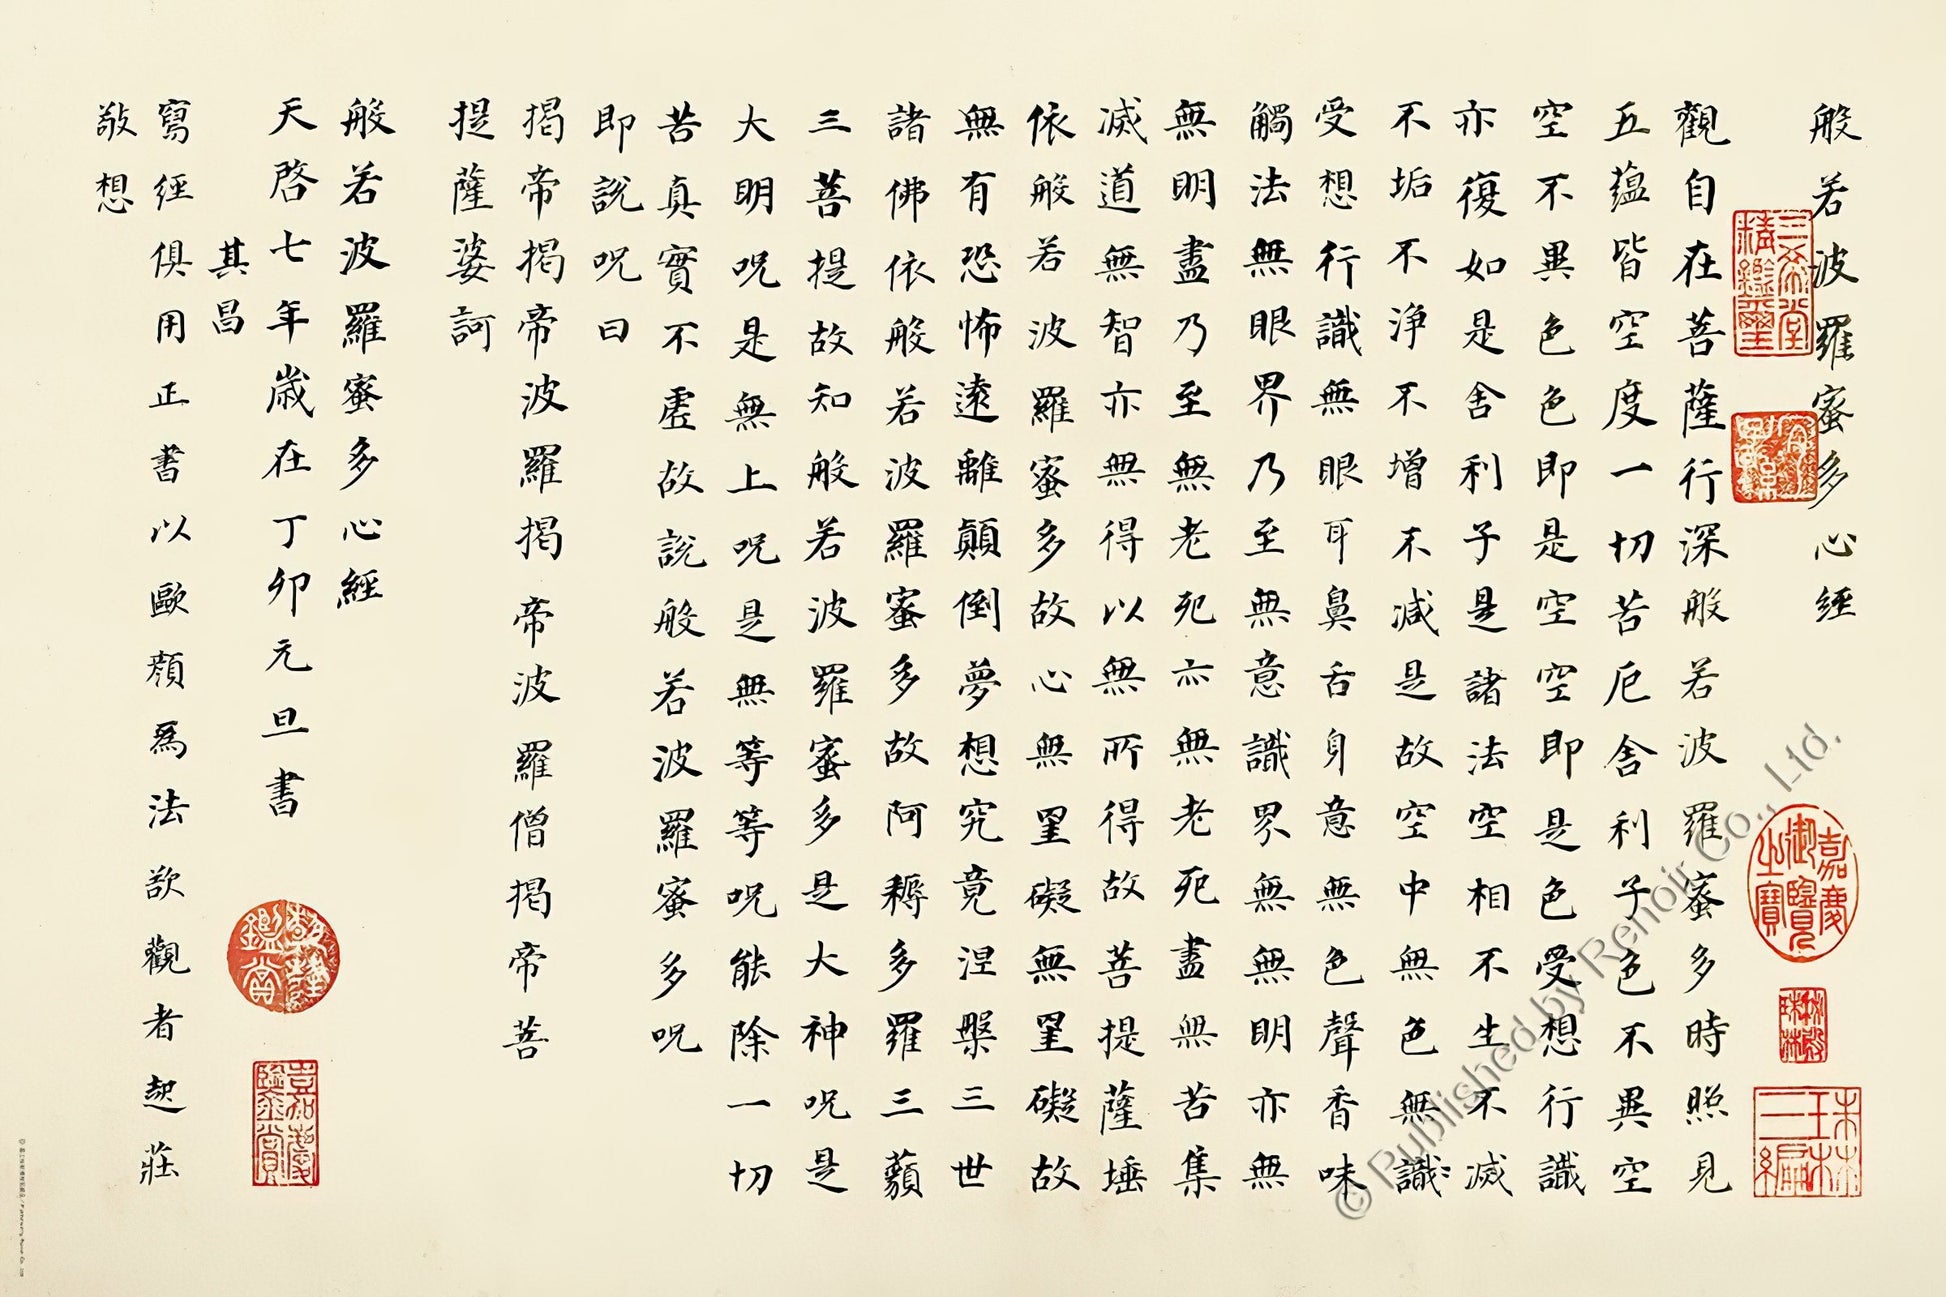 般若波羅蜜多心經
觀自在菩薩行深般若波羅蜜多時照見
五蘊皆空度一切苦厄舍利子色不異空
空不異色色即是空空即是色受想行識
亦復如是舍利子是諸法空相不生不滅
不垢不淨不增不減是故空中無色無識
受想行識無眼耳鼻舌身意無色聲香味
觸法無眼界乃至無意識界無無明亦無
無明盡乃至無老死亦無老死盡無苦集
滅道無智亦無得以無所得故菩提薩埵
依般若波羅蜜多故心無罣礙無罣礙故
無有恐怖遠離顛倒夢想究竟涅槃三世
諸佛依般若波羅蜜多故阿耨多羅三藐
三菩提故知般若波羅蜜多是大神呪是
大明呪是無上呪是無等等呪能除一切
苦真實不虛故說般若波羅蜜多呪
即說呪曰
揭帝揭帝波羅揭帝波羅僧揭帝菩
提薩婆訶
般若波羅蜜多心經
天啓七年歲在丁卯元旦書
其昌
寫經俱用正書以歐顏爲法欲觀者起莊
敬想
三希堂精鑑璽
宜子孫
嘉慶御覽之寶
乾隆鑑賞
嘉慶鑑賞
© Published by Renoir Co., Ltd.